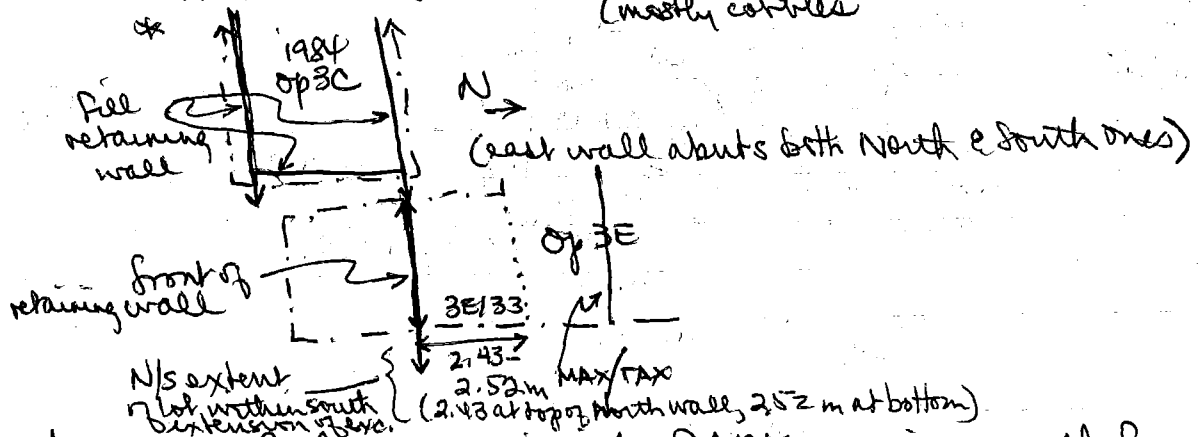 (mostly cobbles
*
1984
Op 3C
N
fill
retaining
wall
(east wall abuts both North & South ones)
Op 3E
front of
retaining wall
3E/33
2.43-
2.52 m
MAX/TAX
N/S extent
of lot, within south
extension of exc.
(2.43 at top of North wall, 2.52 m at bottom)